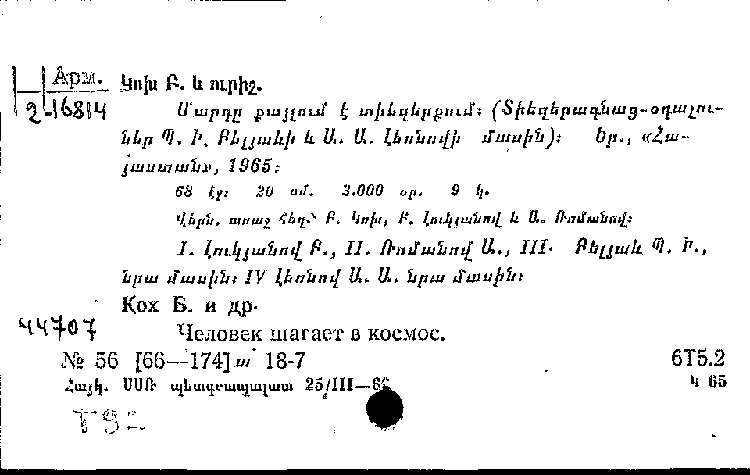 Арм. Կոխ Բ. և ուրիշ.
2-16814 Մարդը քայլում է տիեզերքում: (Տիեզերագնաց-օդաչու-
ներ Պ. Ի. Բելյաևի և Ա. Ա. Լեոնովի մասին): Եր., «Հա-
յաստան», 1965:
68 էջ: 20 սմ. 3.000 օր. 9 կ.
Վերն. առաջ հեղ՝ Բ. Կոխ, Բ. Լուկյանով և Ա. Ռոմանով:
I. Լուկյանով Բ., II. Ռոմանով Ա., III. Բելյաև Պ. Ի.,
նրա մասին: IV Լեոնով Ա. Ա. նրա մասին:
Кох Б. и др.
44707 Человек шагает в космос.
№ 56 [66—174] 18-7 6Т5.2
Հայկ. ՍՍՌ պետգրապալատ 25/III—66 Կ 65
T92